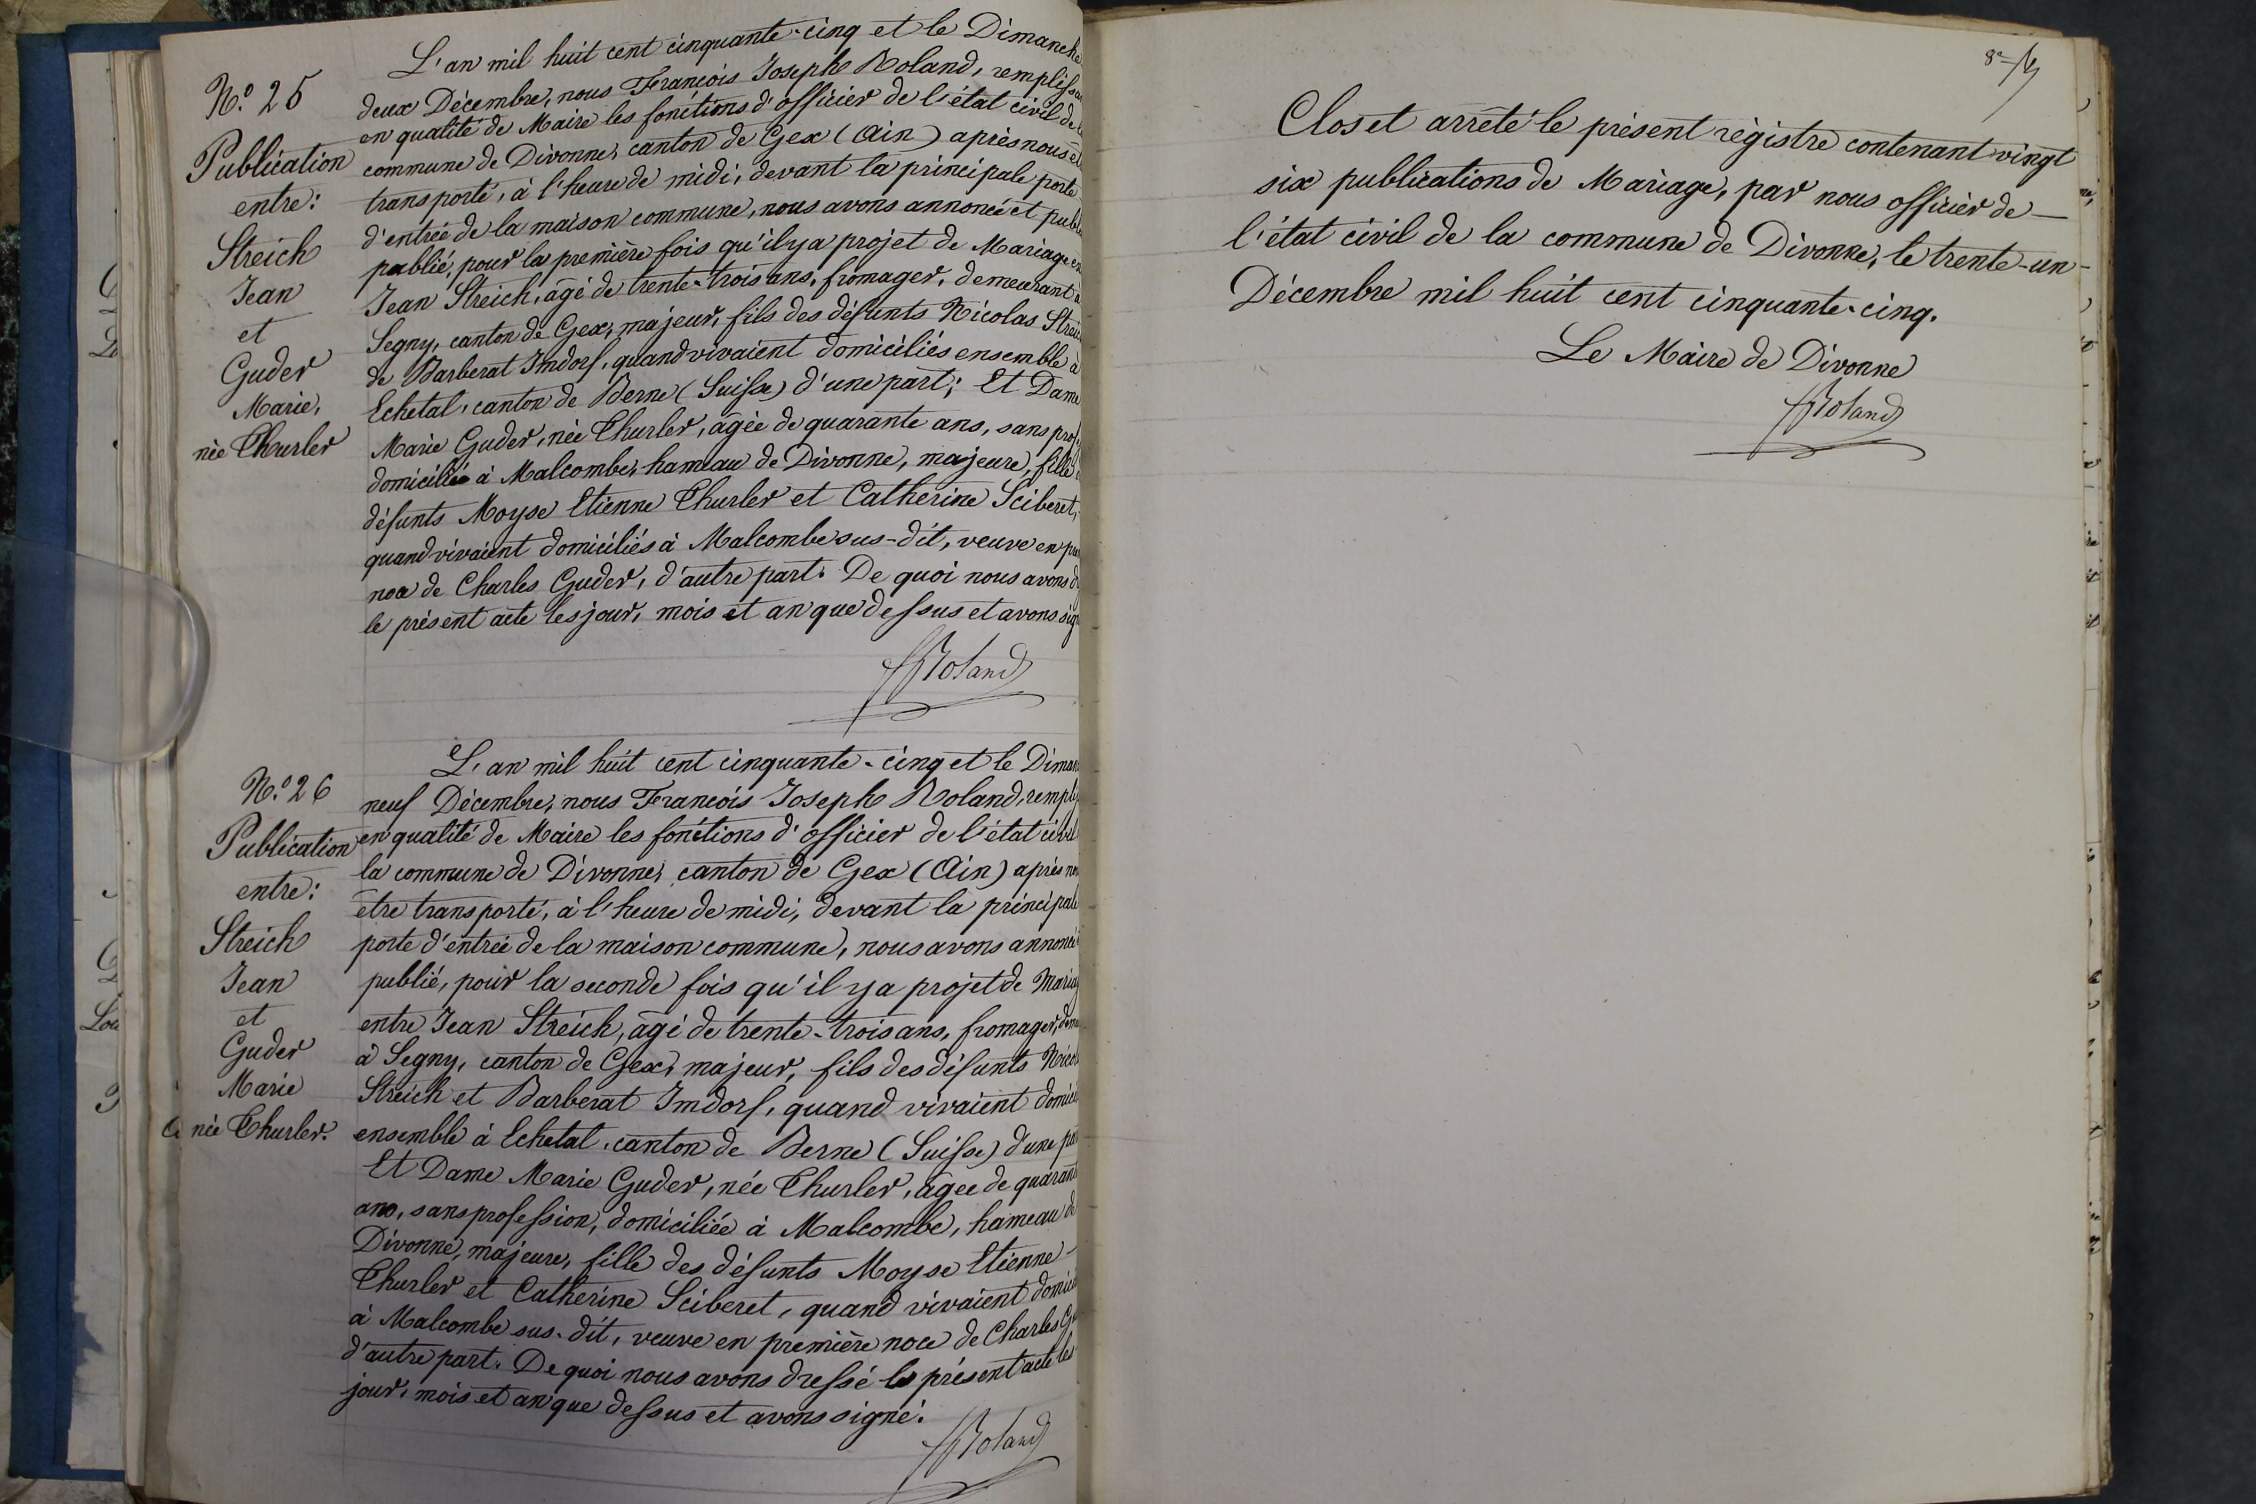 N.o 25
Publication
entre:
Streich
Jean
et
Guder
Marie,
née Thurler
L'an mil huit cent cinquante-cinq et le Dimanche
deux Décembre, nous François Joseph Roland, remplissa
en qualité de Maire les fonctions d'officier de l'état civil de la
commune de Divonne, canton de Gex (Ain) après nous êt
transporté, à l'heure de midi, devant la principale porte
d'entrée de la maison commune, nous avons annoncé et publi
publié, pour la première fois qu'il y a projet de Mariage en
Jean Streich, âgé de trente-trois ans, fromager, demeurant à
Segny, canton de Gex, majeur, fils des défunts Nicolas Strei
de Barberat Imdorf, quand vivaient domiciliés ensemble à
Echetal, canton de Berne (Suisse) d'une part; Et Dame
Marie Guder, née Thurler, âgée de quarante ans, sans prof.
domiciliée à Malcombe, hameau de Divonne, majeure, fille
défunts Moyse Etienne Thurler et Catherine Sciberet,
quand vivaient domiciliés à Malcombe sus-dit, veuve en pre
noce de Charles Guder, d'autre part. De quoi nous avons d
le présent acte les jour, mois et an que dessus et avons sign
Roland
N.o 26
Publication
entre:
Streich
Jean
et
Guder
Marie
née Thurler.
L'an mil huit cent cinquante-cinq et le Diman
neuf Décembre, nous François Joseph Roland, remplis
en qualité de Maire les fonctions d'officier de l'état civil
la commune de Divonne, canton de Gex (Ain) après nou
être transporté, à l'heure de midi, devant la principale
porte d'entrée de la maison commune, nous avons annoncé
publié, pour la seconde fois qu'il y a projet de Mariag
entre Jean Streich, âgé de trente-trois ans, fromager, deme
à Segny, canton de Gex, majeur, fils des défunts Nicol
Streich et Barberat Imdorf, quand vivaient domicil
ensemble à Echetal, canton de Berne (Suisse) d'une par
Et Dame Marie Guder, née Thurler, âgée de quarant
ans, sans profession, domiciliée à Malcombe, hameau de
Divonne, majeure, fille des défunts Moyse Etienne
Thurler et Catherine Sciberet, quand vivaient domicil
à Malcombe sus-dit, veuve en première noce de Charles Gu
d'autre part. De quoi nous avons dressé le présent acte les
jour, mois et an que dessus et avons signé.
Roland
8e
Clos et arrêté le présent régistre contenant vingt
six publications de Mariage, par nous officier de
l'état civil de la commune de Divonne, le trente-un
Décembre mil huit cent cinquante-cinq.
Le Maire de Divonne
Roland